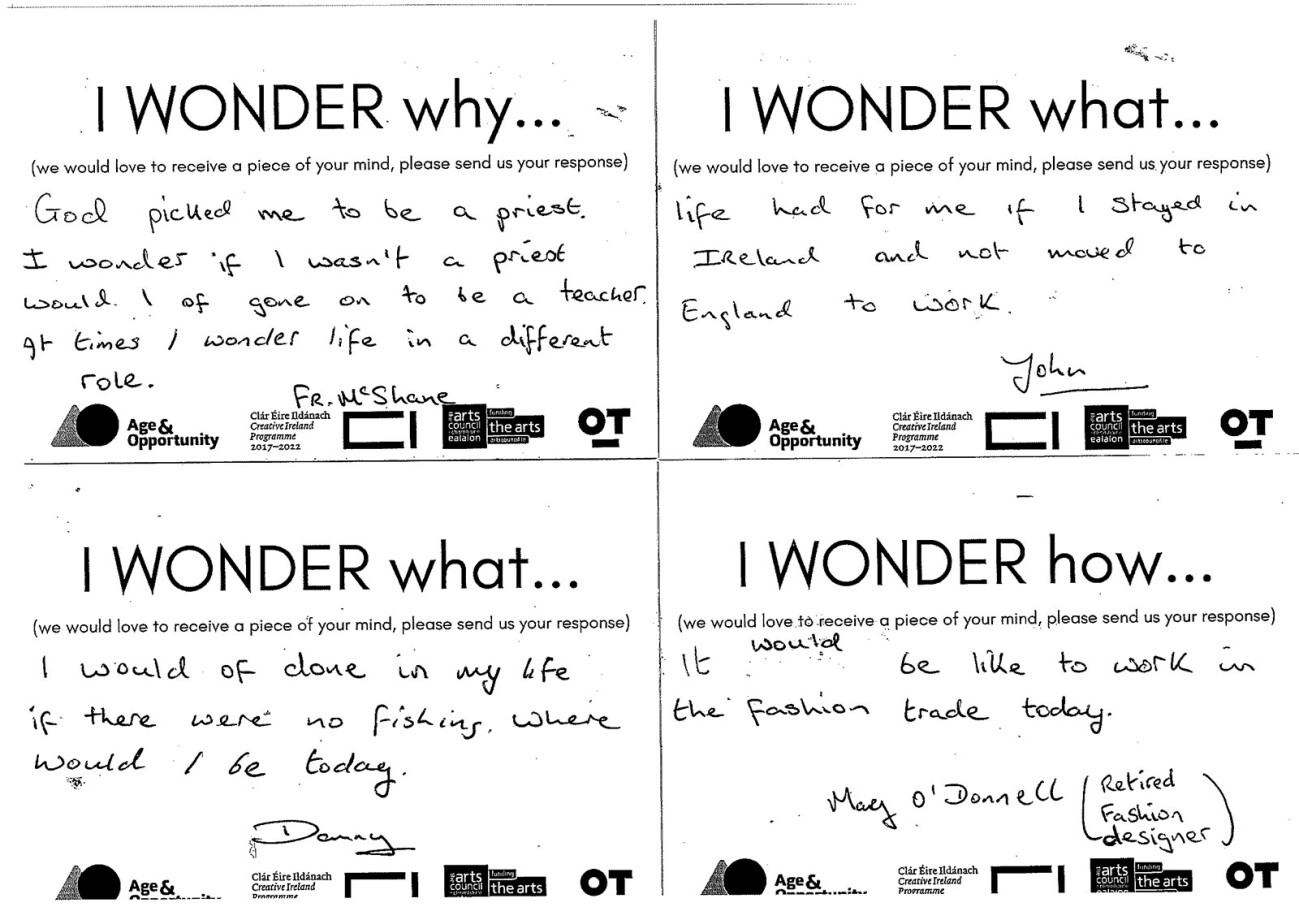 I WONDER why...
(we would love to receive a piece of your mind, please send us your response)
God picked me to be a priest.
I wonder if I wasn't a priest
would I of gone on to be a teacher.
At times I wonder life in a different
role.
FR. McShane
Age &
Opportunity
Clár Éire Ildánach
Creative Ireland
Programme
2017–2022
arts
council
ealaíon
funding
the arts
artscouncil.ie
OT
I WONDER what...
(we would love to receive a piece of your mind, please send us your response)
life had for me if I stayed in
IReland and not moved to
England to work.
John
Age &
Opportunity
Clár Éire Ildánach
Creative Ireland
Programme
2017–2022
arts
council
ealaíon
funding
the arts
artscouncil.ie
OT
I WONDER what...
(we would love to receive a piece of your mind, please send us your response)
I would of done in my life
if there were no fishing. where
would I be today.
Danny
Age &
Opportunity
Clár Éire Ildánach
Creative Ireland
Programme
arts
council
funding
the arts
OT
I WONDER how...
(we would love to receive a piece of your mind, please send us your response)
It would be like to work in
the fashion trade today.
Mary O'Donnell (Retired
Fashion
designer)
Age &
Opportunity
Clár Éire Ildánach
Creative Ireland
Programme
arts
council
funding
the arts
OT